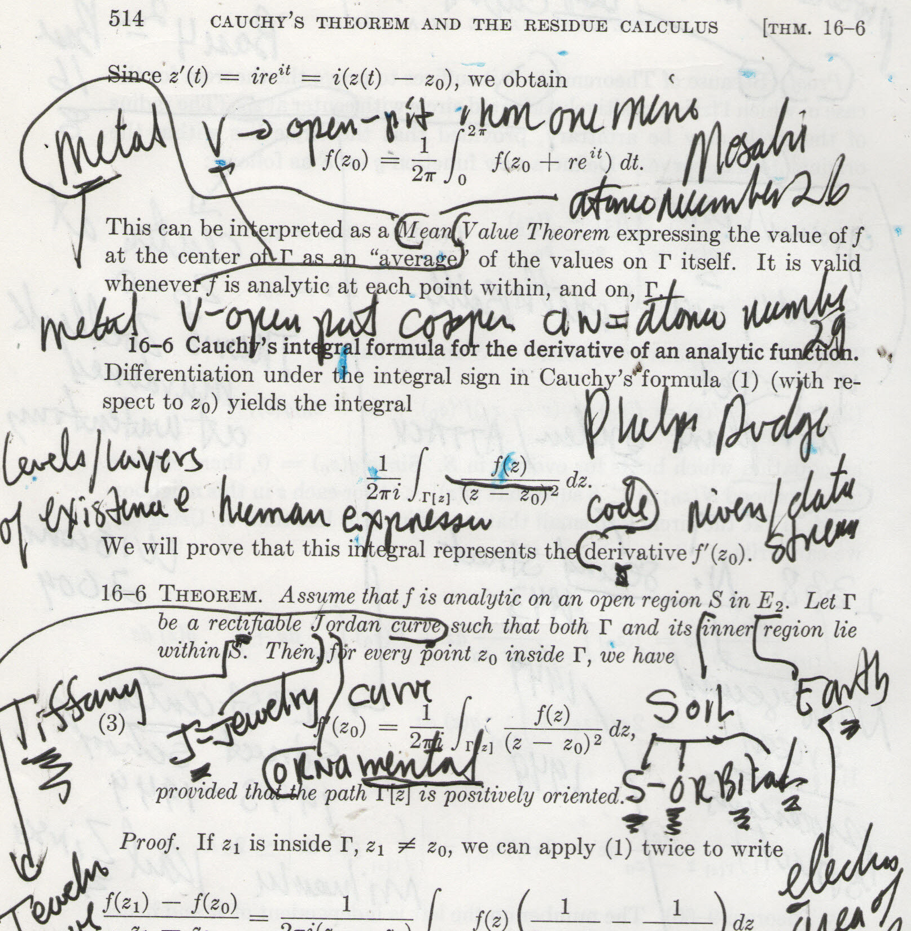 514 CAUCHY'S THEOREM AND THE RESIDUE CALCULUS [THM. 16–6
Since z′(t) = ire^{it} = i(z(t) − z₀), we obtain
Metal V → open-pit iron one
f(z₀) = 1/2π ∫₀^{2π} f(z₀ + re^{it}) dt.
Mesabi
atomic number 26
This can be interpreted as a Mean Value Theorem expressing the value of f
at the center of Γ as an “average” of the values on Γ itself. It is valid
whenever f is analytic at each point within, and on, Γ.
metal V-open put copper an = atomic number
29
16–6 Cauchy's integral formula for the derivative of an analytic function.
Differentiation under the integral sign in Cauchy's formula (1) (with re-
spect to z₀) yields the integral
Phelps Dodge
levels/layers
1/2πi ∫_{Γ[z]} f(z)/(z − z₀)² dz.
of existence human expression code rivers/data
stream
We will prove that this integral represents the derivative f′(z₀).
16–6 THEOREM. Assume that f is analytic on an open region S in E₂. Let Γ
be a rectifiable Jordan curve such that both Γ and its inner region lie
within S. Then, for every point z₀ inside Γ, we have
Tiffany J=Jewelry curve Soil Earth
(3) f′(z₀) = 1/2πi ∫_{Γ[z]} f(z)/(z − z₀)² dz,
ORNAmental S-ORBITAL
provided that the path Γ[z] is positively oriented.
Proof. If z₁ is inside Γ, z₁ ≠ z₀, we can apply (1) twice to write
area of
f(z₁) − f(z₀) = 1 ∫ f(z) ( 1 − 1 ) dz